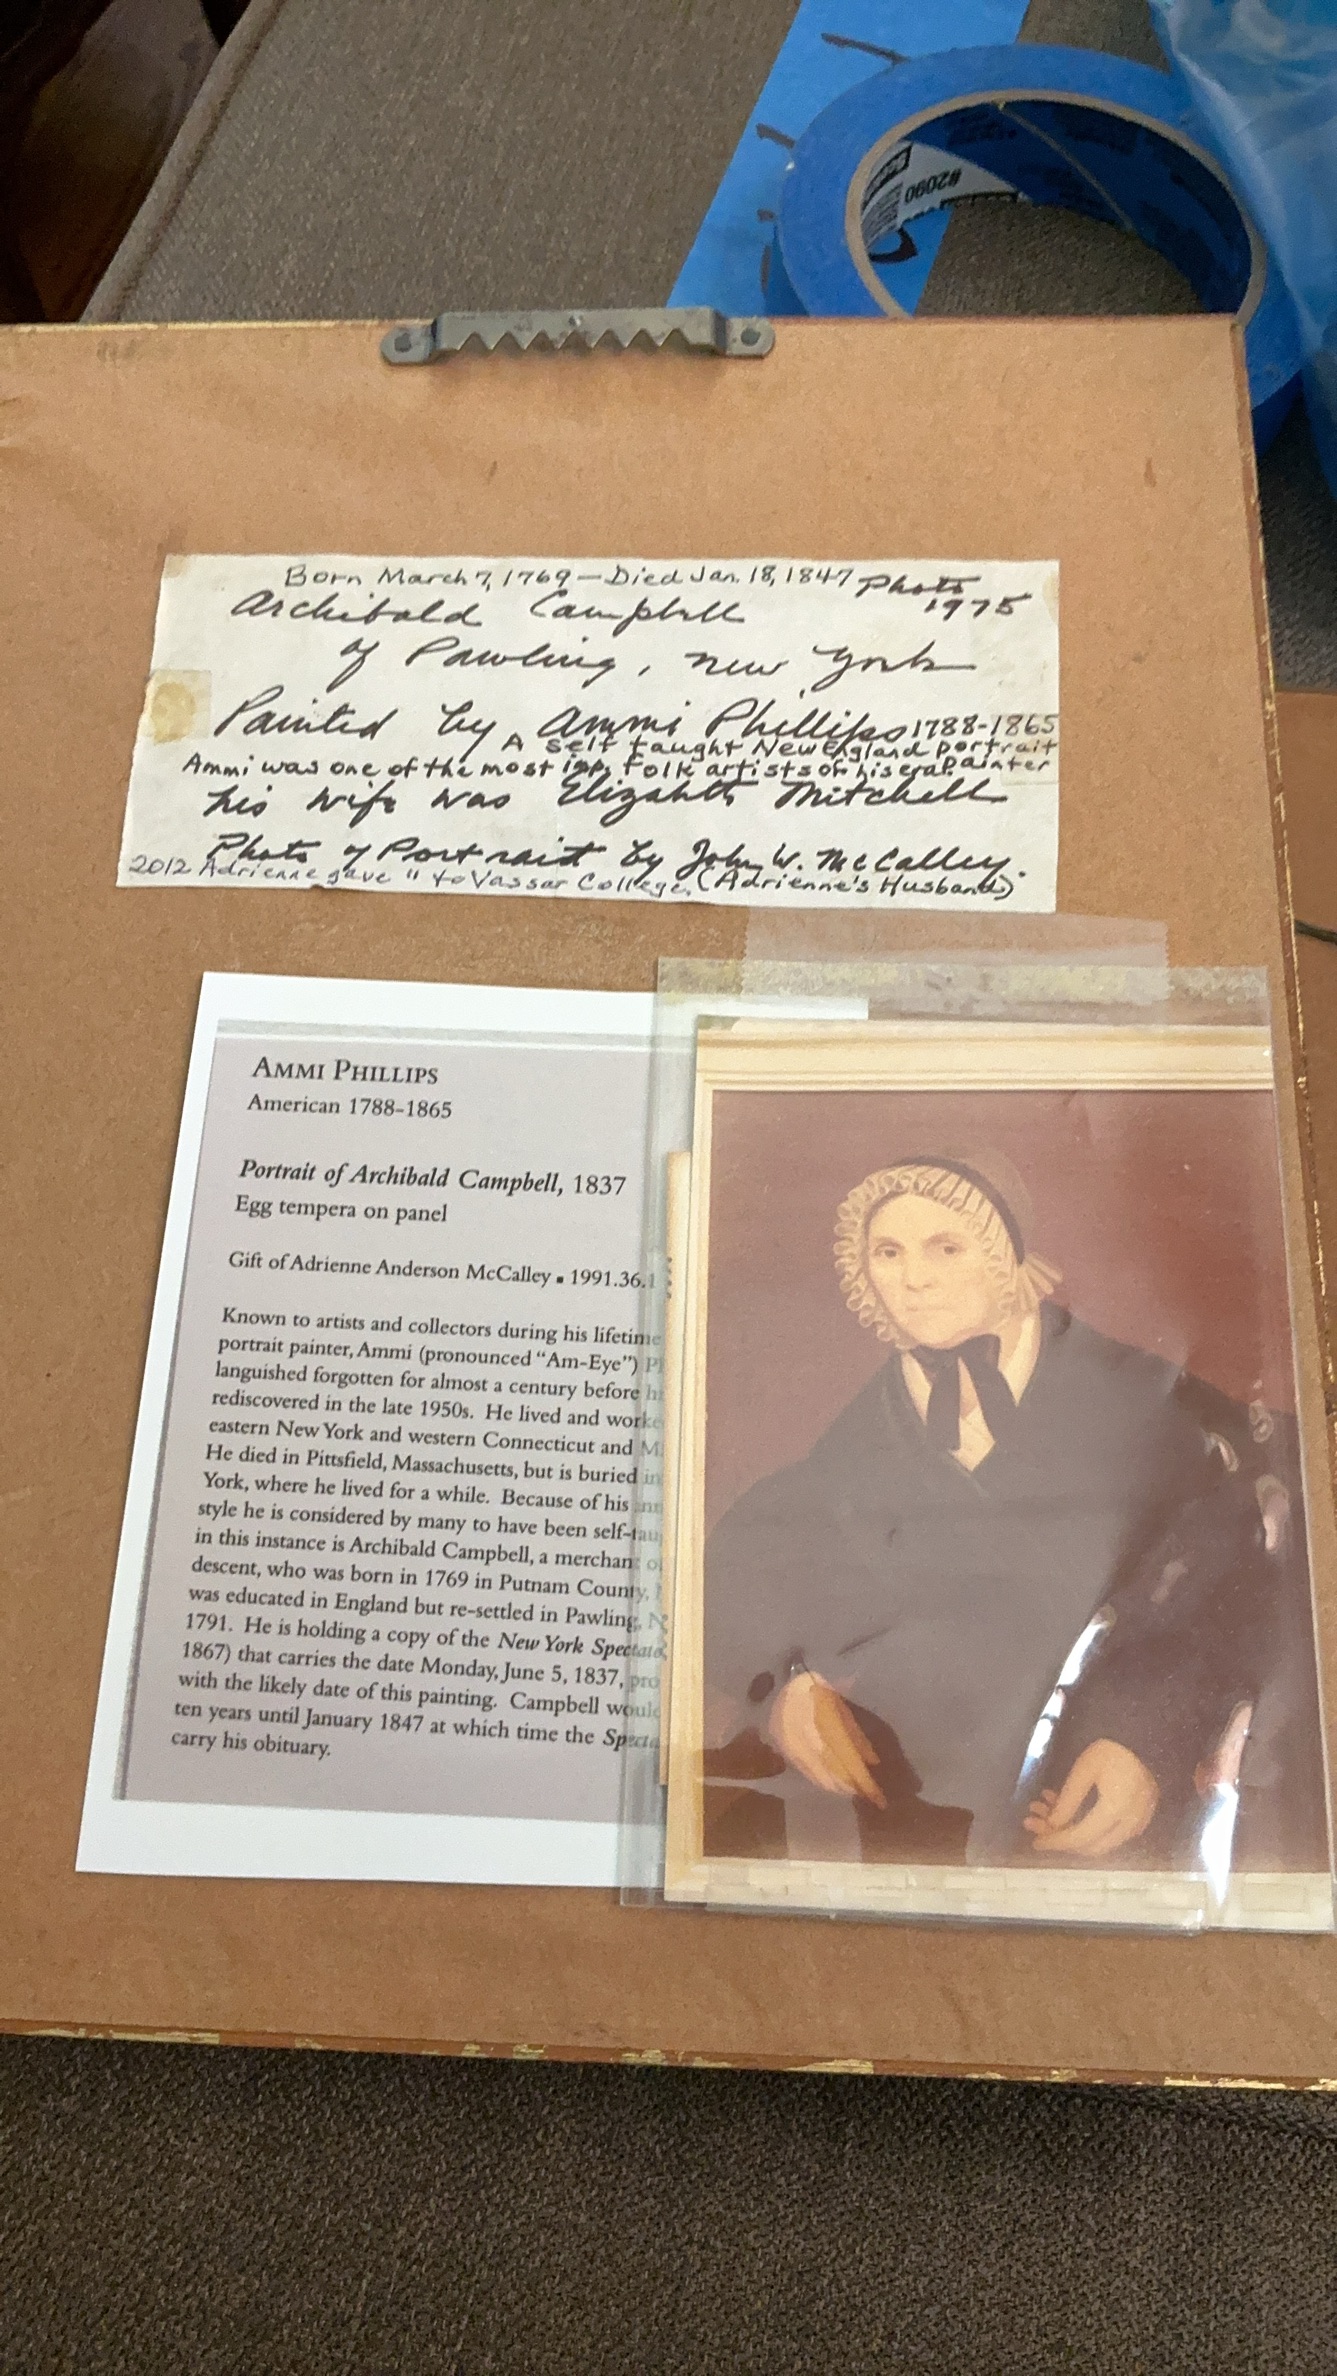 #2090
Born March 7, 1769 — Died Jan. 18, 1847 Photo
1975
Archibald Campbell
of Pawling, New York
Painted by Ammi Phillips 1788-1865
A self taught New England portrait
painter
Ammi was one of the most imp. folk artists of his era.
his wife was Elizabeth Mitchell
Photo of Portrait by John W. McCalley.
2012 Adrienne gave " to Vassar College. (Adrienne's Husband)
AMMI PHILLIPS
American 1788–1865
Portrait of Archibald Campbell, 1837
Egg tempera on panel
Gift of Adrienne Anderson McCalley ▪ 1991.36.1
Known to artists and collectors during his lifetime
portrait painter, Ammi (pronounced “Am-Eye”)
languished forgotten for almost a century before
rediscovered in the late 1950s. He lived and worke
eastern New York and western Connecticut and M
He died in Pittsfield, Massachusetts, but is buried in
York, where he lived for a while. Because of his
style he is considered by many to have been self-tau
in this instance is Archibald Campbell, a merchant o
descent, who was born in 1769 in Putnam County,
was educated in England but re-settled in Pawling, N
1791. He is holding a copy of the New York Spectato
1867) that carries the date Monday, June 5, 1837, pro
with the likely date of this painting. Campbell would
ten years until January 1847 at which time the Specta
carry his obituary.